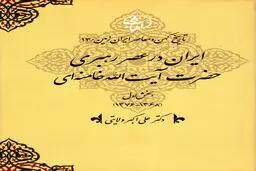 تاریخ کهن و معاصر ایران زمین -۱۳
ایران در عصر رهبری
حضرت آیت‌الله خامنه‌ای
بخش اول
(۱۳۶۸-۱۳۷۶)
دکتر علی اکبر ولایتی